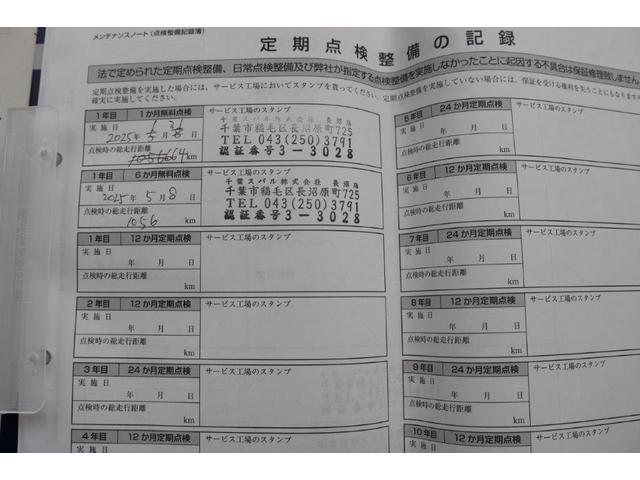 メンテナンスノート(点検整備記録簿)
定期点検整備の記録
法で定められた定期点検整備、日常点検整備及び弊社が指定する点検整備を実施しなかったことに起因する不具合は保証修理致しま
定期点検整備を実施した場合には、サービス工場においてスタンプを貰ってください。定期点検整備を実施していない場合には、保証を受ける権利を失うことにもなります
確実に実施してください。
1年目 1か月無料点検 サービス工場のスタンプ
実施日
2025年 月 日
点検時の総走行距離
km
千葉スバル株式会社 長沼店
千葉市稲毛区長沼原町725
TEL 043(250)3791
認証番号3-3028
1年目 6か月無料点検 サービス工場のスタンプ
実施日
2025年 5月 8日
点検時の総走行距離
1056 km
千葉スバル株式会社 長沼店
千葉市稲毛区長沼原町725
TEL 043(250)3791
認証番号3-3028
1年目 12か月定期点検 サービス工場のスタンプ
実施日
年 月 日
点検時の総走行距離
km
2年目 12か月定期点検 サービス工場のスタンプ
実施日
年 月 日
点検時の総走行距離
km
3年目 24か月定期点検 サービス工場のスタンプ
実施日
年 月 日
点検時の総走行距離
km
4年目 12か月定期点検 サービス工場のスタンプ
5年目 24か月定期点検
実施日
年 月 日
点検時の総走行距離
km
6年目 12か月定期点検
実施日
年 月 日
点検時の総走行距離
km
7年目 24か月定期点検
実施日
年 月 日
点検時の総走行距離
km
8年目 12か月定期点検
実施日
年 月 日
点検時の総走行距離
km
9年目 24か月定期点検
実施日
年 月 日
点検時の総走行距離
km
10年目 12か月定期点検